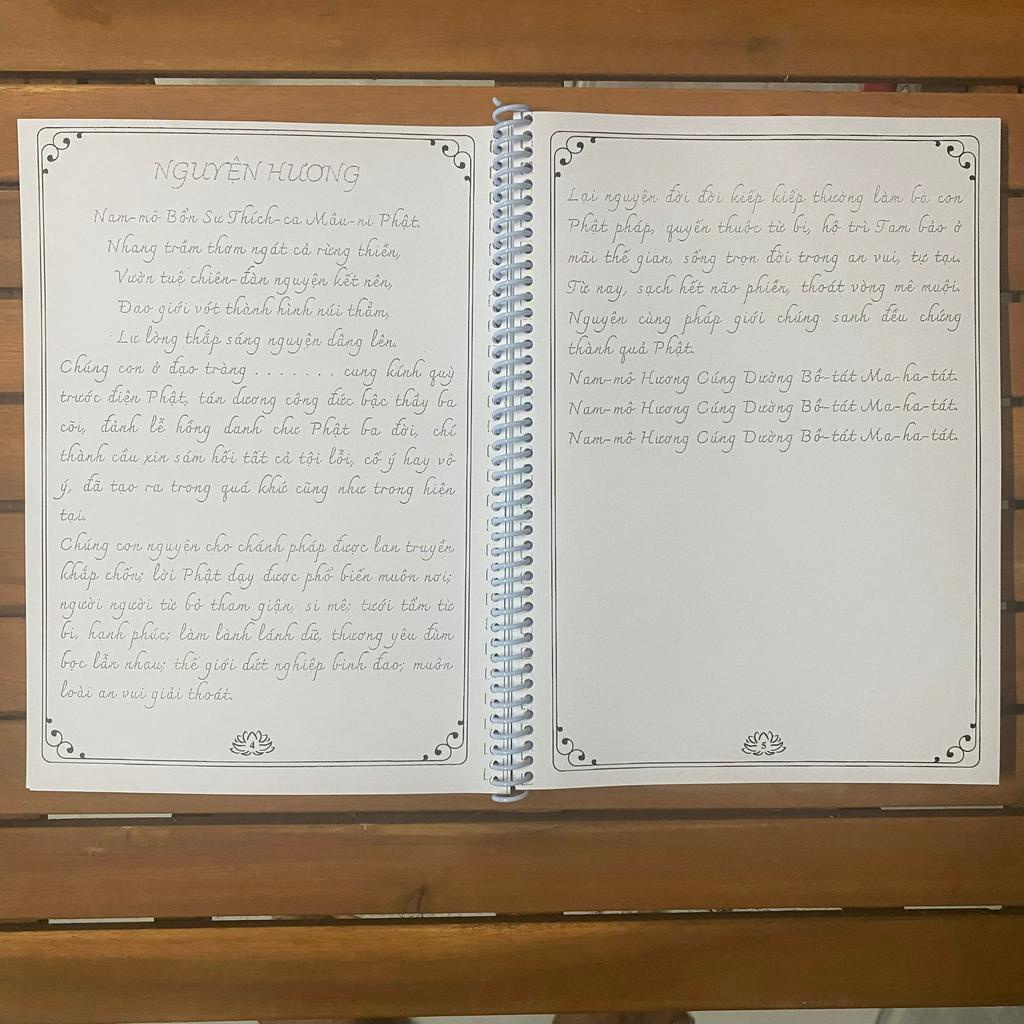 NGUYỆN HƯƠNG
Nam-mô Bổn Sư Thích-ca Mâu-ni Phật.
Nhang trầm thơm ngát cả rừng thiền,
Vườn tuệ chiên-đàn nguyện kết nên,
Đao giới vót thành hình núi thẳm,
Lư lòng thắp sáng nguyện dâng lên.
Chúng con ở đạo tràng . . . . . . . cung kính quỳ
trước điện Phật, tán dương công đức bậc thầy ba
cõi, đảnh lễ hồng danh chư Phật ba đời, chí
thành cầu xin sám hối tất cả tội lỗi, cố ý hay vô
ý, đã tạo ra trong quá khứ cũng như trong hiện
tại.
Chúng con nguyện cho chánh pháp được lan truyền
khắp chốn; lời Phật dạy được phổ biến muôn nơi;
người người từ bỏ tham giận, si mê; tưới tẩm từ
bi, hạnh phúc; làm lành lánh dữ, thương yêu đùm
bọc lẫn nhau; thế giới dứt nghiệp binh đao; muôn
loài an vui giải thoát.
4
Lại nguyện đời đời kiếp kiếp thường làm bà con
Phật pháp, quyến thuộc từ bi, hộ trì Tam bảo ở
mãi thế gian, sống trọn đời trong an vui, tự tại.
Từ nay, sạch hết não phiền, thoát vòng mê muội.
Nguyện cùng pháp giới chúng sanh đều chứng
thành quả Phật.
Nam-mô Hương Cúng Dường Bồ-tát Ma-ha-tát.
Nam-mô Hương Cúng Dường Bồ-tát Ma-ha-tát.
Nam-mô Hương Cúng Dường Bồ-tát Ma-ha-tát.
5